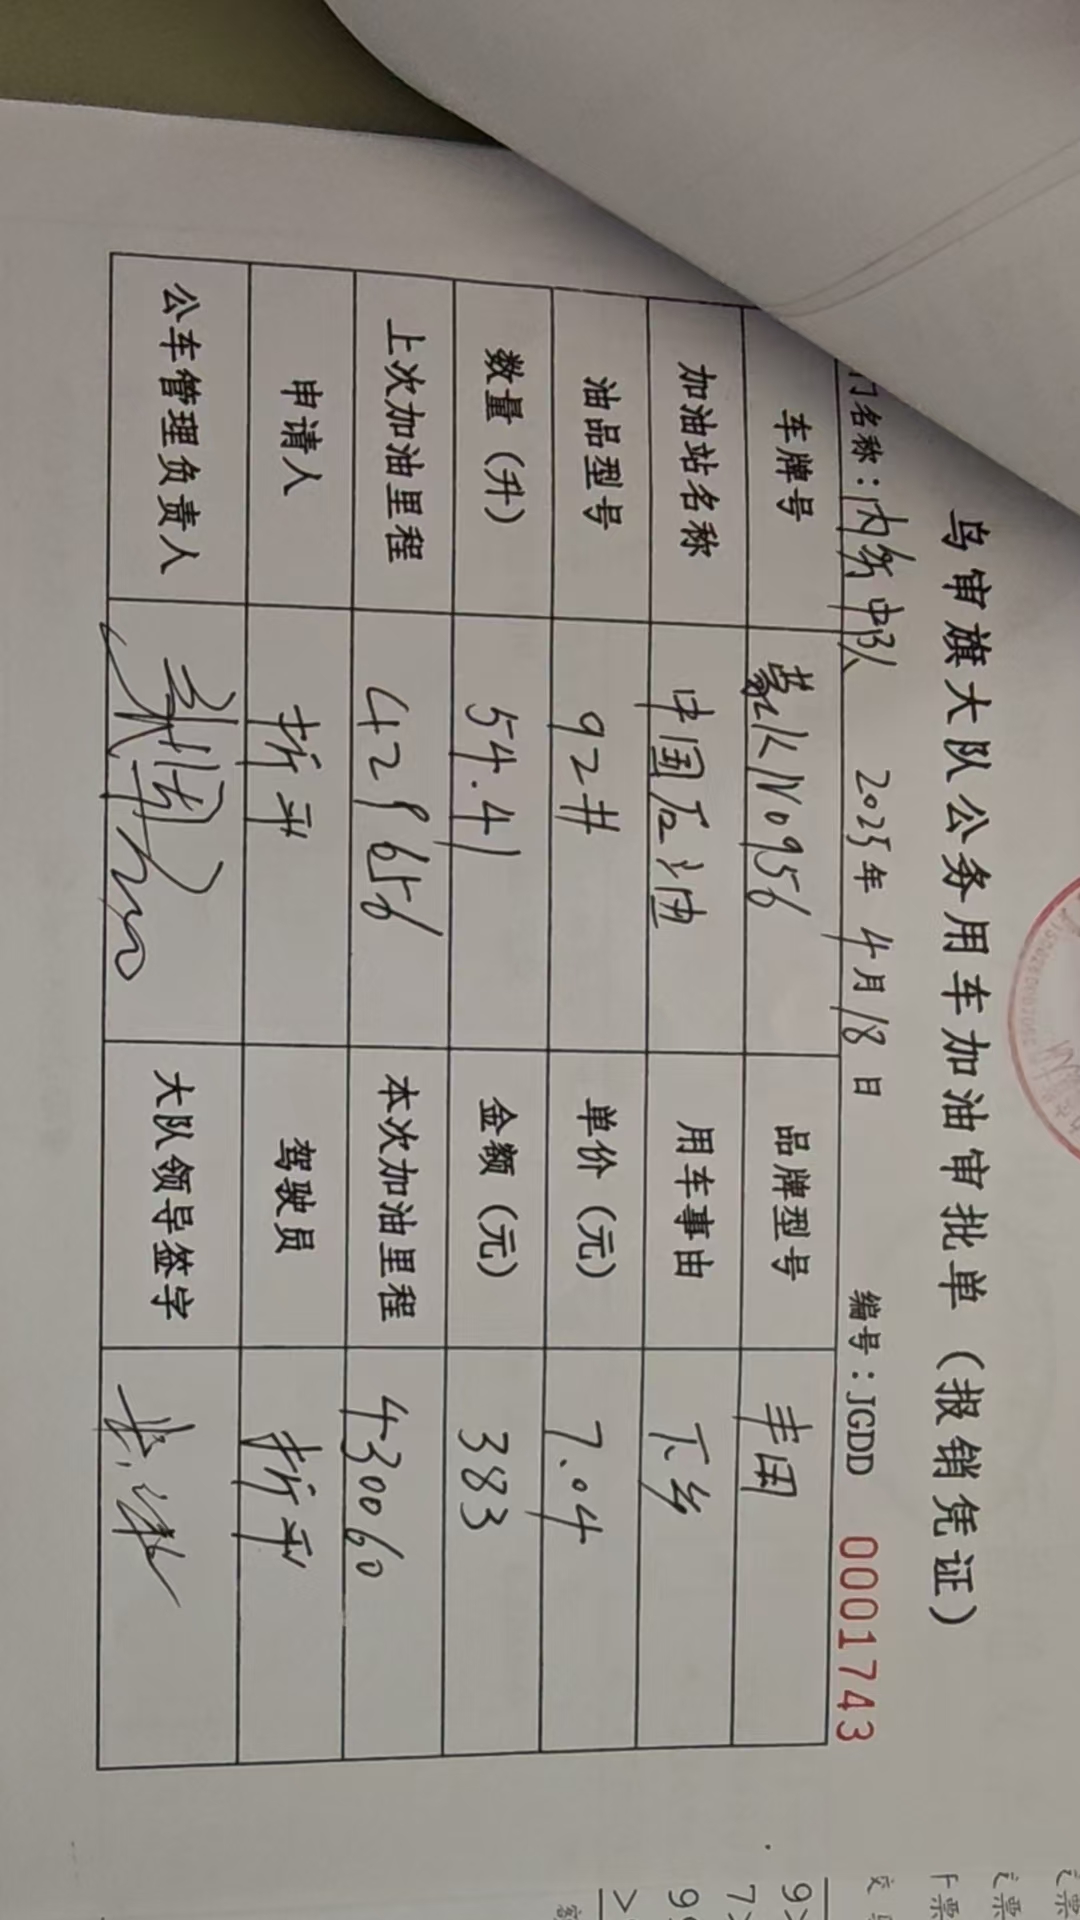 乌审旗大队公务用车加油审批单（报销凭证）
门名称：内务中队 2025年 4月18日 编号：JGDD 0001743
车牌号 蒙KN0956 品牌型号 丰田
加油站名称 中国石油 用车事由 下乡
油品型号 92# 单价（元） 7.04
数量（升） 54.41 金额（元） 383
上次加油里程 429656 本次加油里程 430060
申请人 折平 驾驶员 折平
公车管理负责人 大队领导签字